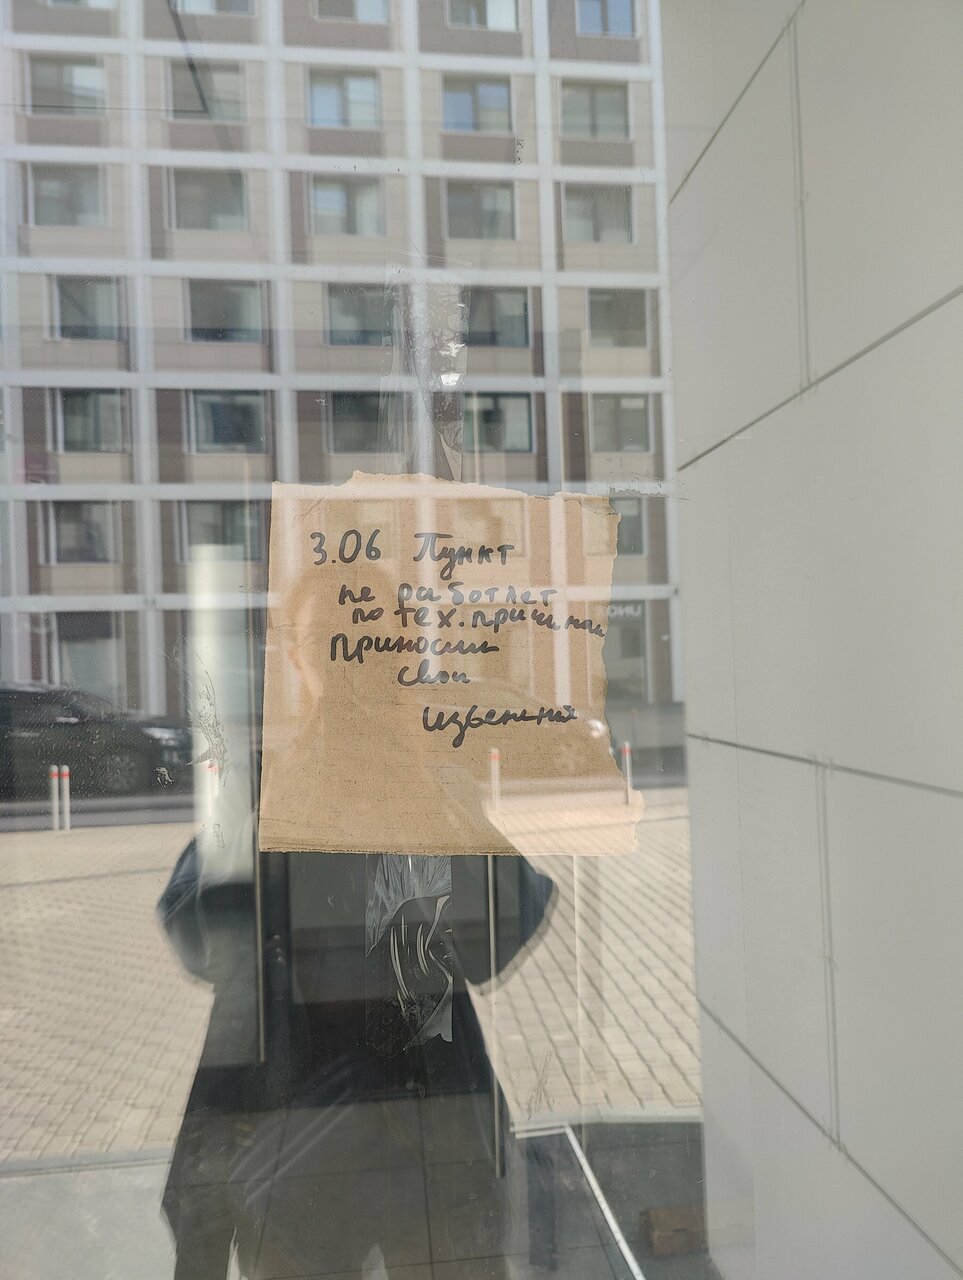 3.06 Пункт
не работает
по тех. причинам
Приносим
свои
извенения